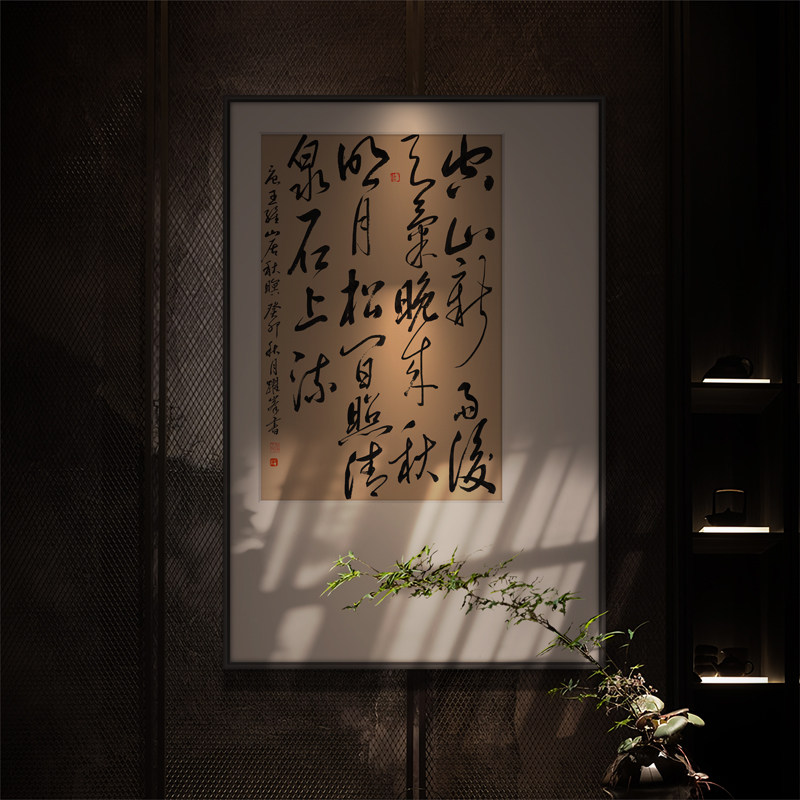 空山新雨後
天氣晚來秋
明月松間照清
泉石上流
唐王維山居秋暝癸卯秋月躍崇書